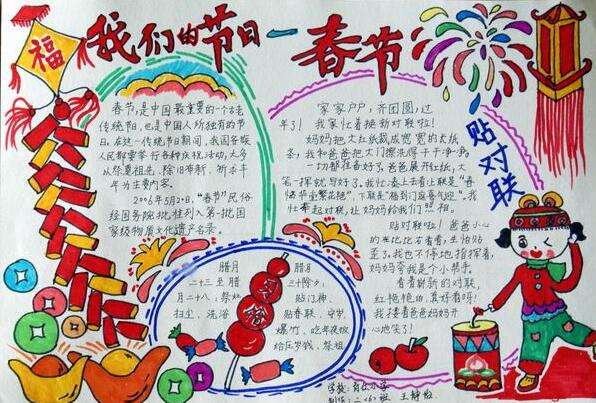 福
我们的节日一春节
春节,是中国最重要的一个古老
传统节日,也是中国人所独有的节
日。在这一传统节日期间,我国各族
人民都要举行各种庆祝活动,大多
以祭奠祖先、除旧布新、祈求丰
年为主要内容。
2006年5月20日,“春节”民俗
经国务院批准列入第一批国
家级物质文化遗产名录。
家家户户,齐团圆,过
年了! 我家忙着换新对联啦!
妈妈把大红纸裁成宽宽的长纸
条,我和爸爸把大门擦洗得干干净净。
一切都准备好了,爸爸展开红纸,大
笔一挥就写好了。我忙
上联是“春
繁花艳”,下联是“福到门庭喜气迎”。我
忙举起对联,让妈妈给我们照相。
贴对联
贴对联啦!爸爸小心
地左右看看,生怕贴
歪了。我也不停地指挥着,
妈妈夸我是个小帮手。
看着崭新的对联
红艳艳的真好看呀!
我搂着爸爸妈妈开
心地笑了!
腊月
二十三至腊
月二十八:祭灶
扫尘、洗浴
腊月
三十除夕:
贴门神、
贴春联、守岁、
爆竹、吃年夜饭
给压岁钱、祭祖
学校:
班